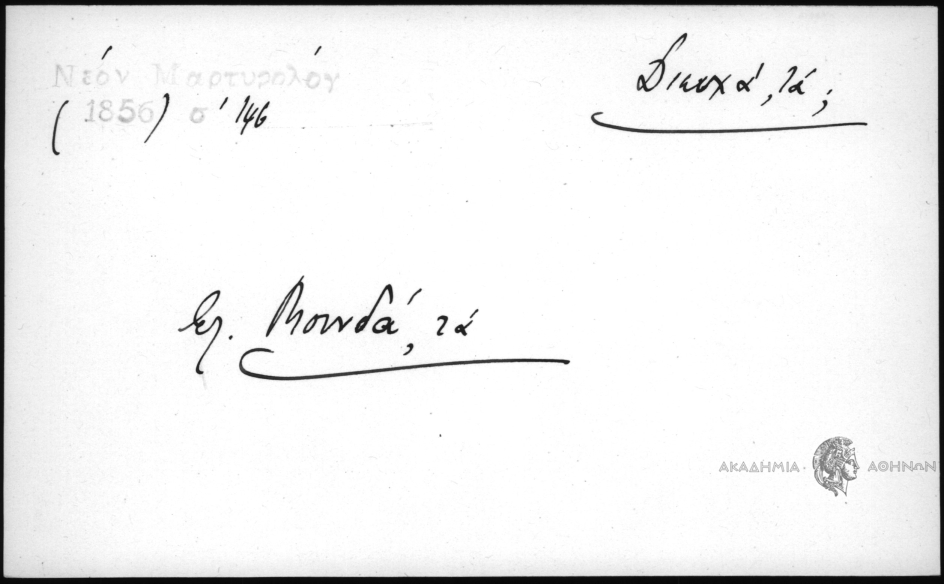 Νέον Μαρτυρολόγ
(1856) σ' 146
Διευχά, τά;
βλ. Βουνδά, τά
ΑΚΑΔΗΜΙΑ ΑΘΗΝΩΝ